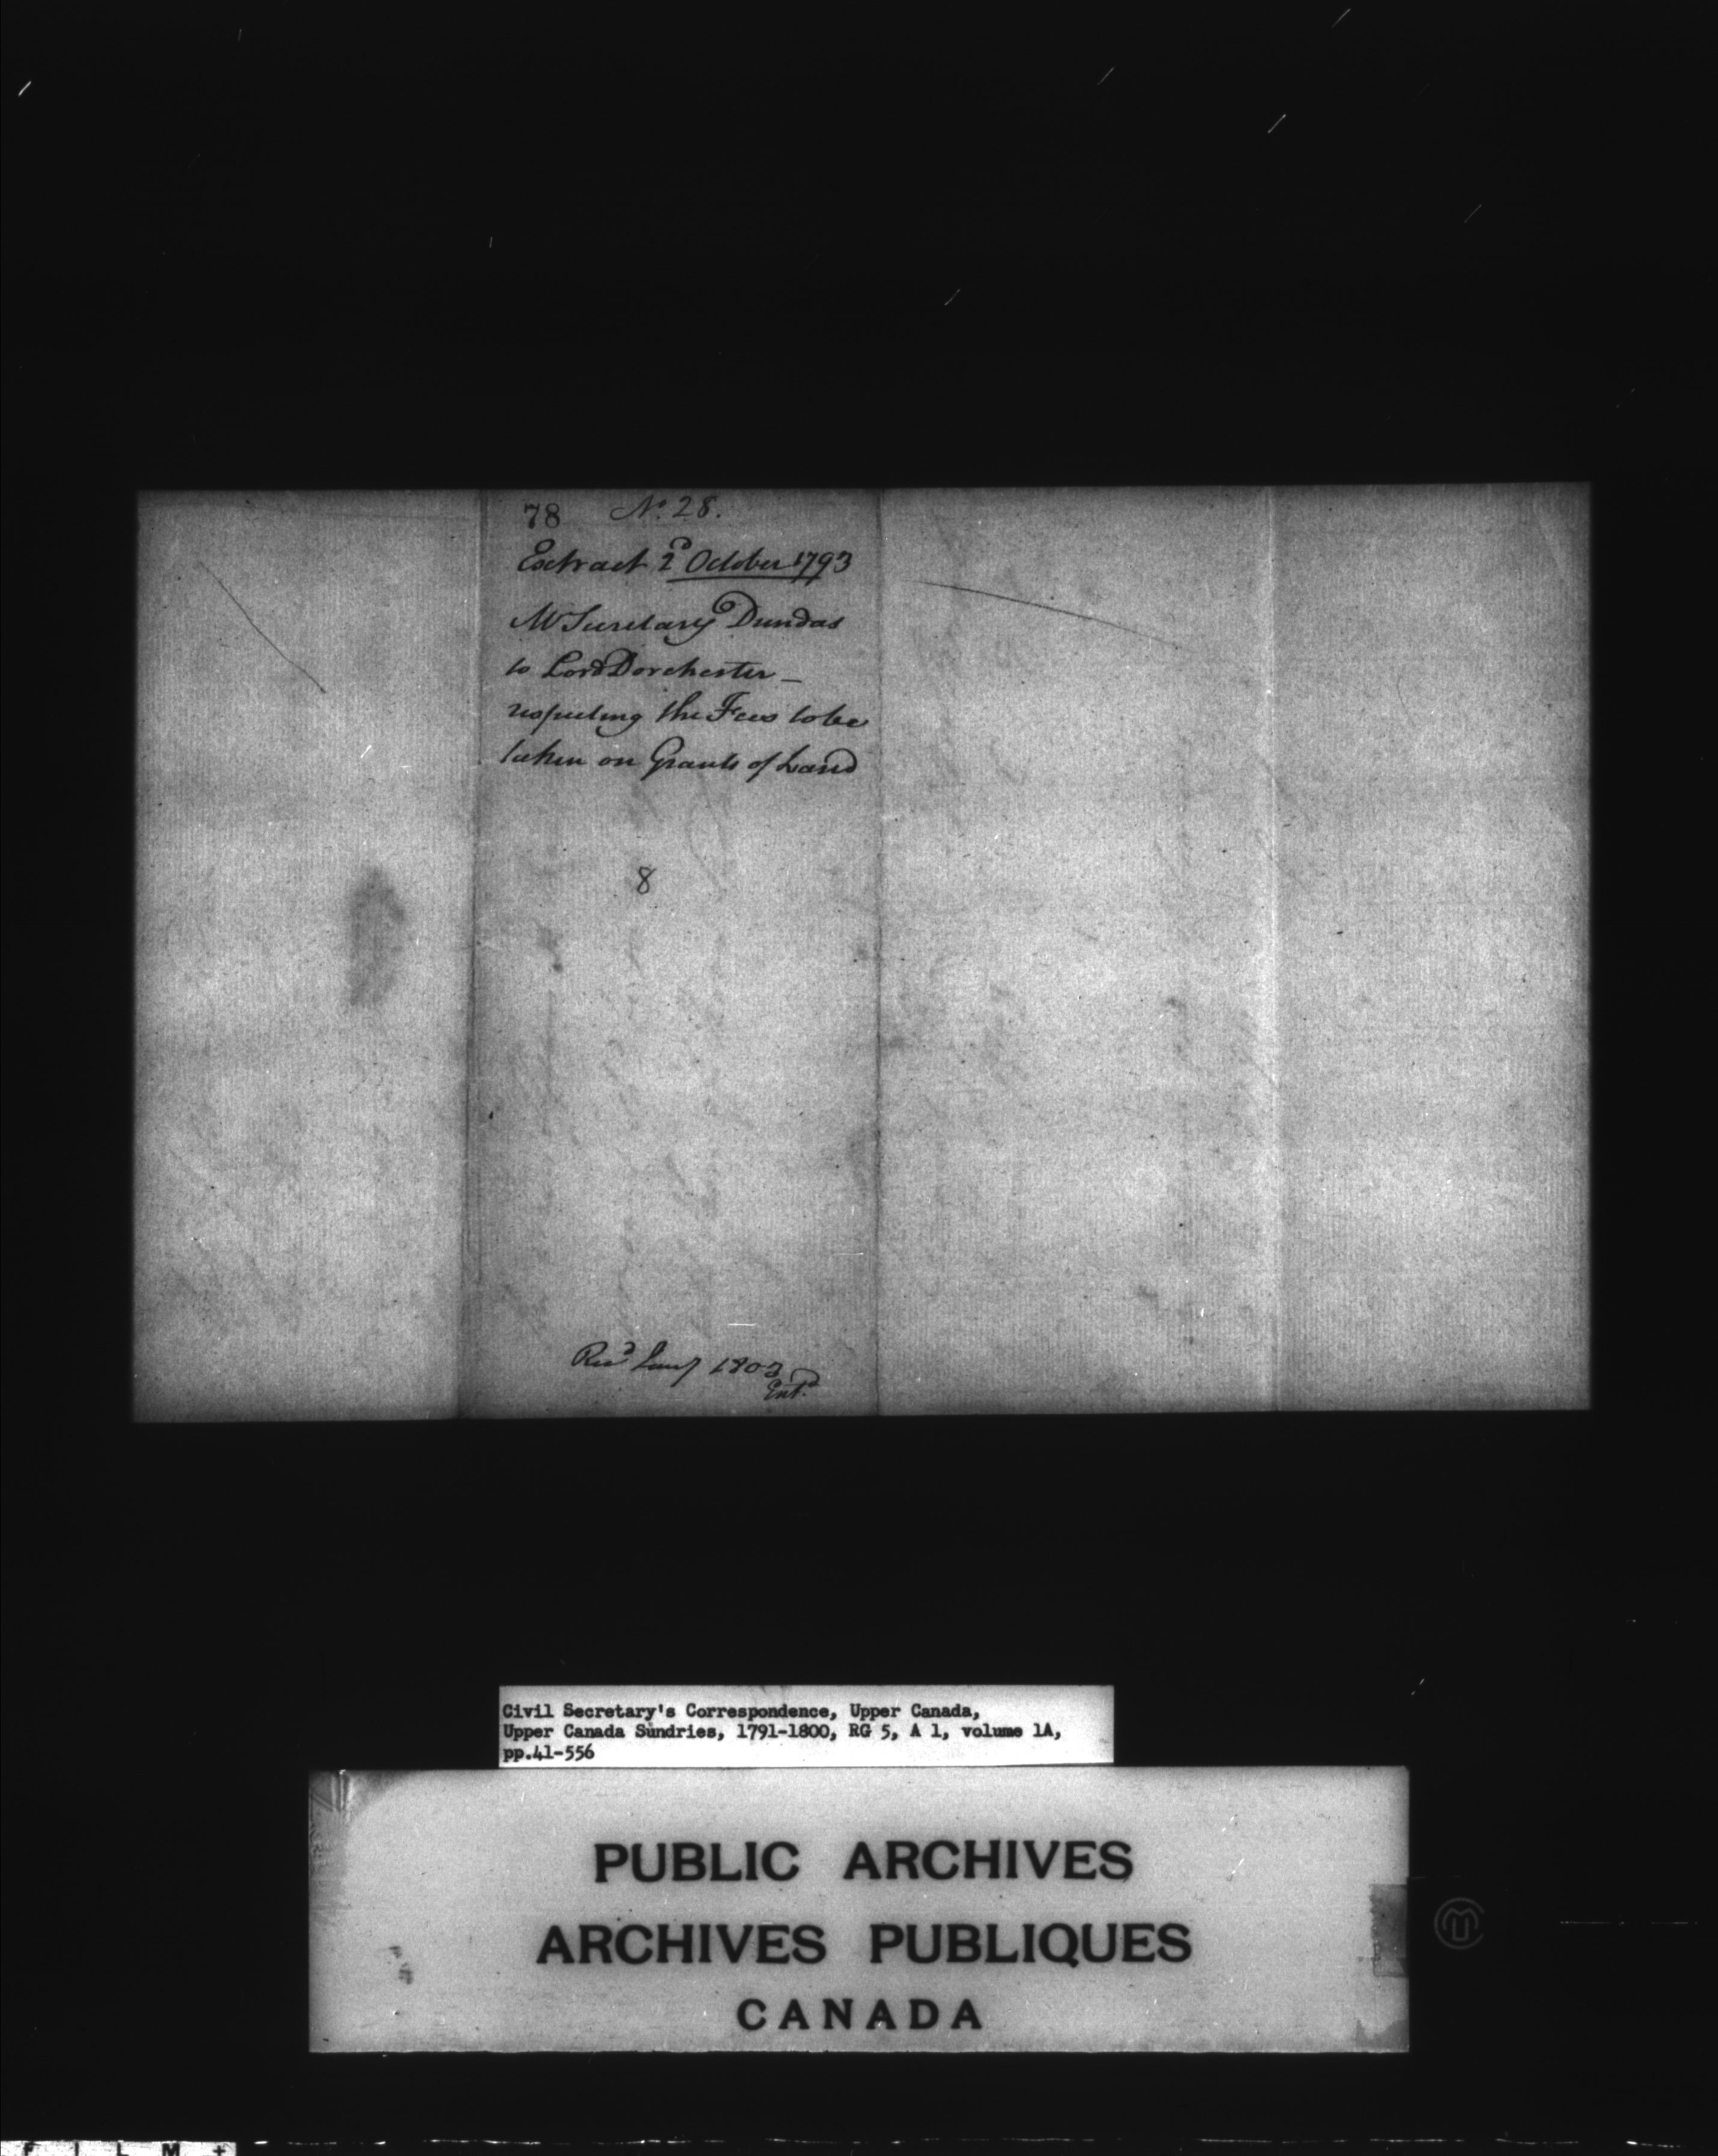 78 No. 28.
Extract 2d October 1793
Mr Secretary Dundas
to Lord Dorchester —
respecting the Fees to be
taken on Grants of Land
8
Recd Jany 1803
Entd.
Civil Secretary's Correspondence, Upper Canada,
Upper Canada Sundries, 1791-1800, RG 5, A 1, volume 1A,
pp.41-556
PUBLIC ARCHIVES
ARCHIVES PUBLIQUES
CANADA